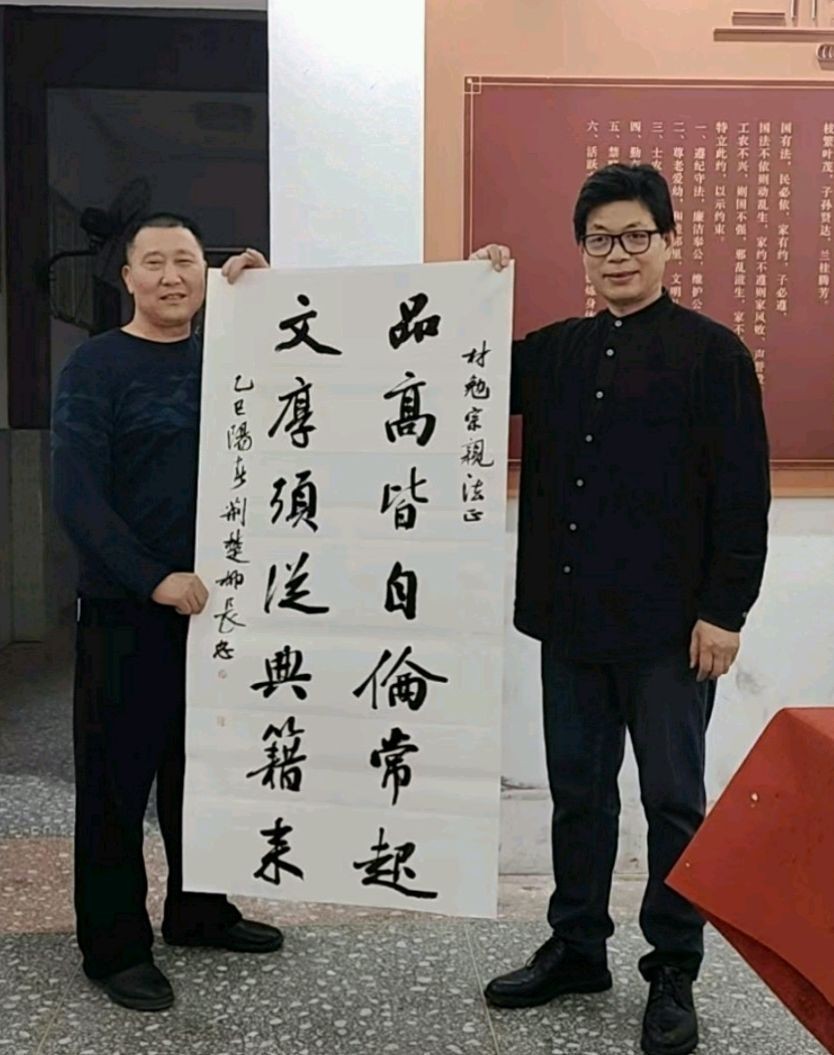 枝繁叶茂，子孙贤达，兰桂腾芳。
国有法，民必依，家有约，子必遵。
国法不依则动乱生，家约不遵则家风败，声誉
工农不兴，则国不强，邪乱滋生，家不
特立此约，以示约束。
一、遵纪守法，廉洁奉公，维护公
二、尊老爱幼，和睦邻里，文明
三、士农
四、勤
五、禁
六、活跃
材勉宗親法正
品高皆自倫常起
文厚須從典籍来
乙巳陽春荆楚柳長忠